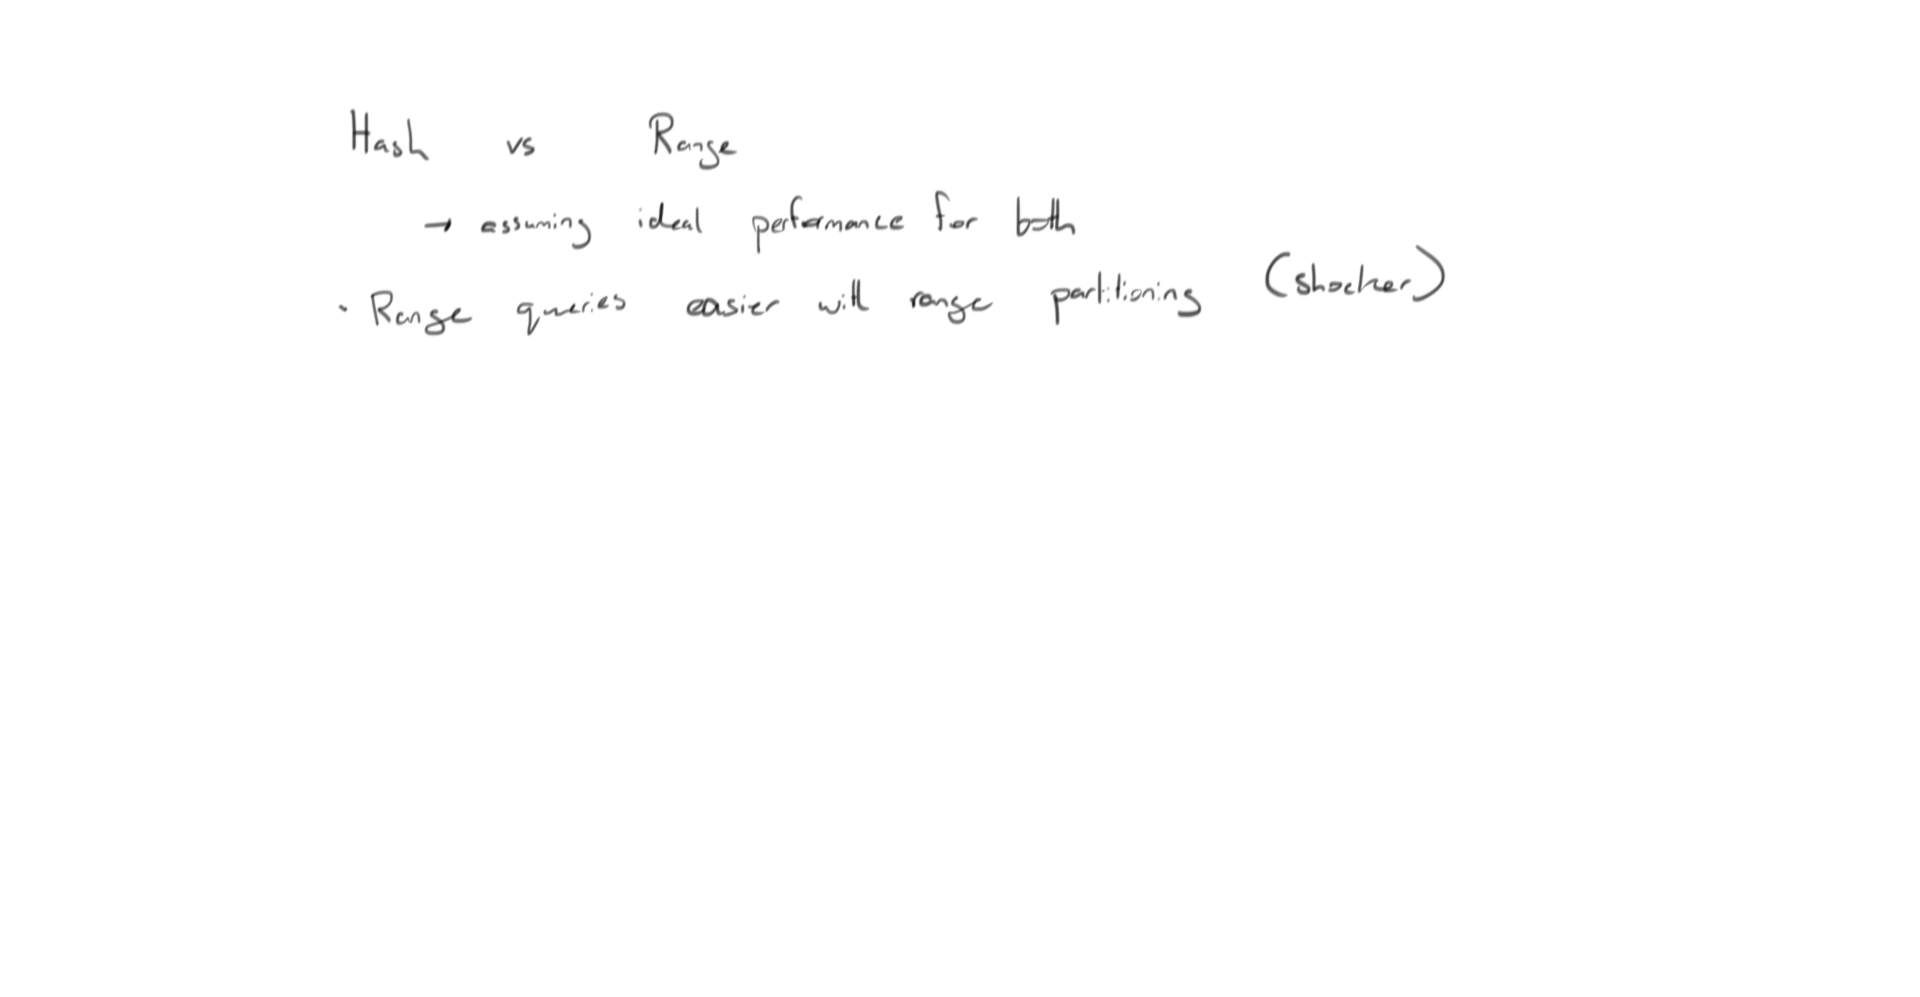 Hash vs Range
→ assuming ideal performance for both
· Range queries easier with range partitioning (shocker)